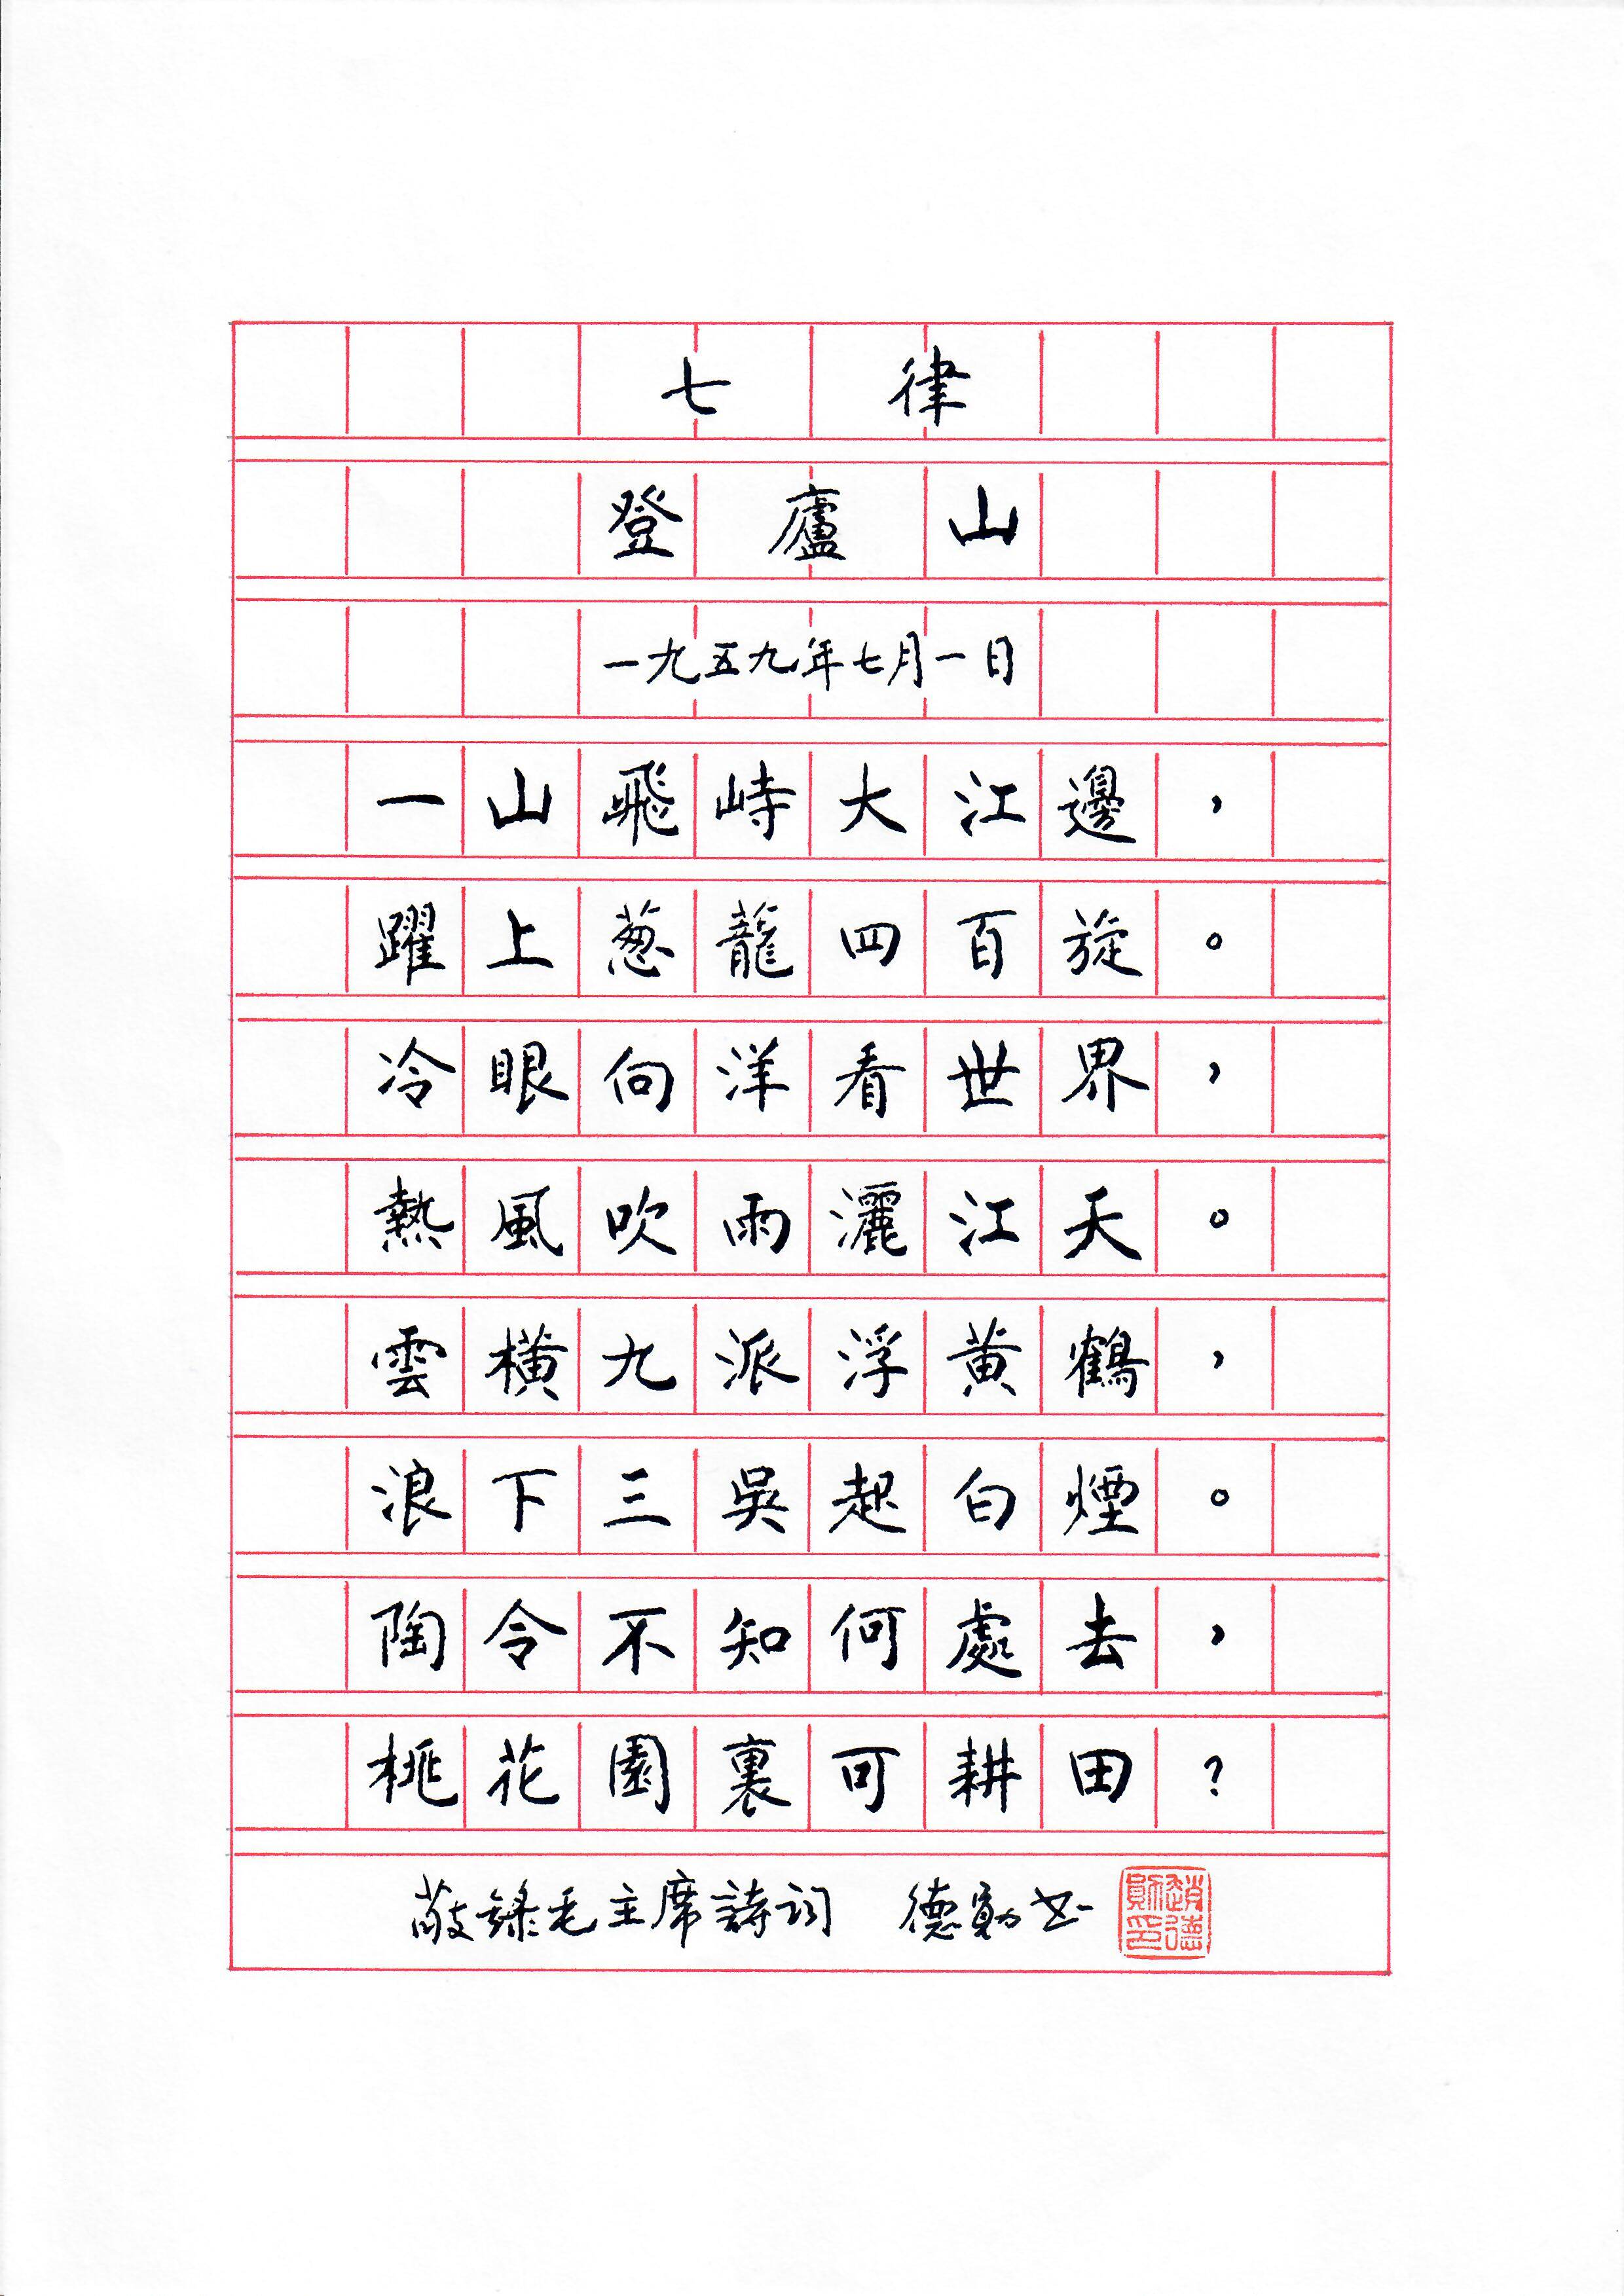 七律
登廬山
一九五九年七月一日
一山飛峙大江邊，
躍上葱蘢四百旋。
冷眼向洋看世界，
熱風吹雨灑江天。
雲橫九派浮黃鶴，
浪下三吳起白煙。
陶令不知何處去，
桃花園裏可耕田？
敬錄毛主席詩詞 德勛书
趙德勛印